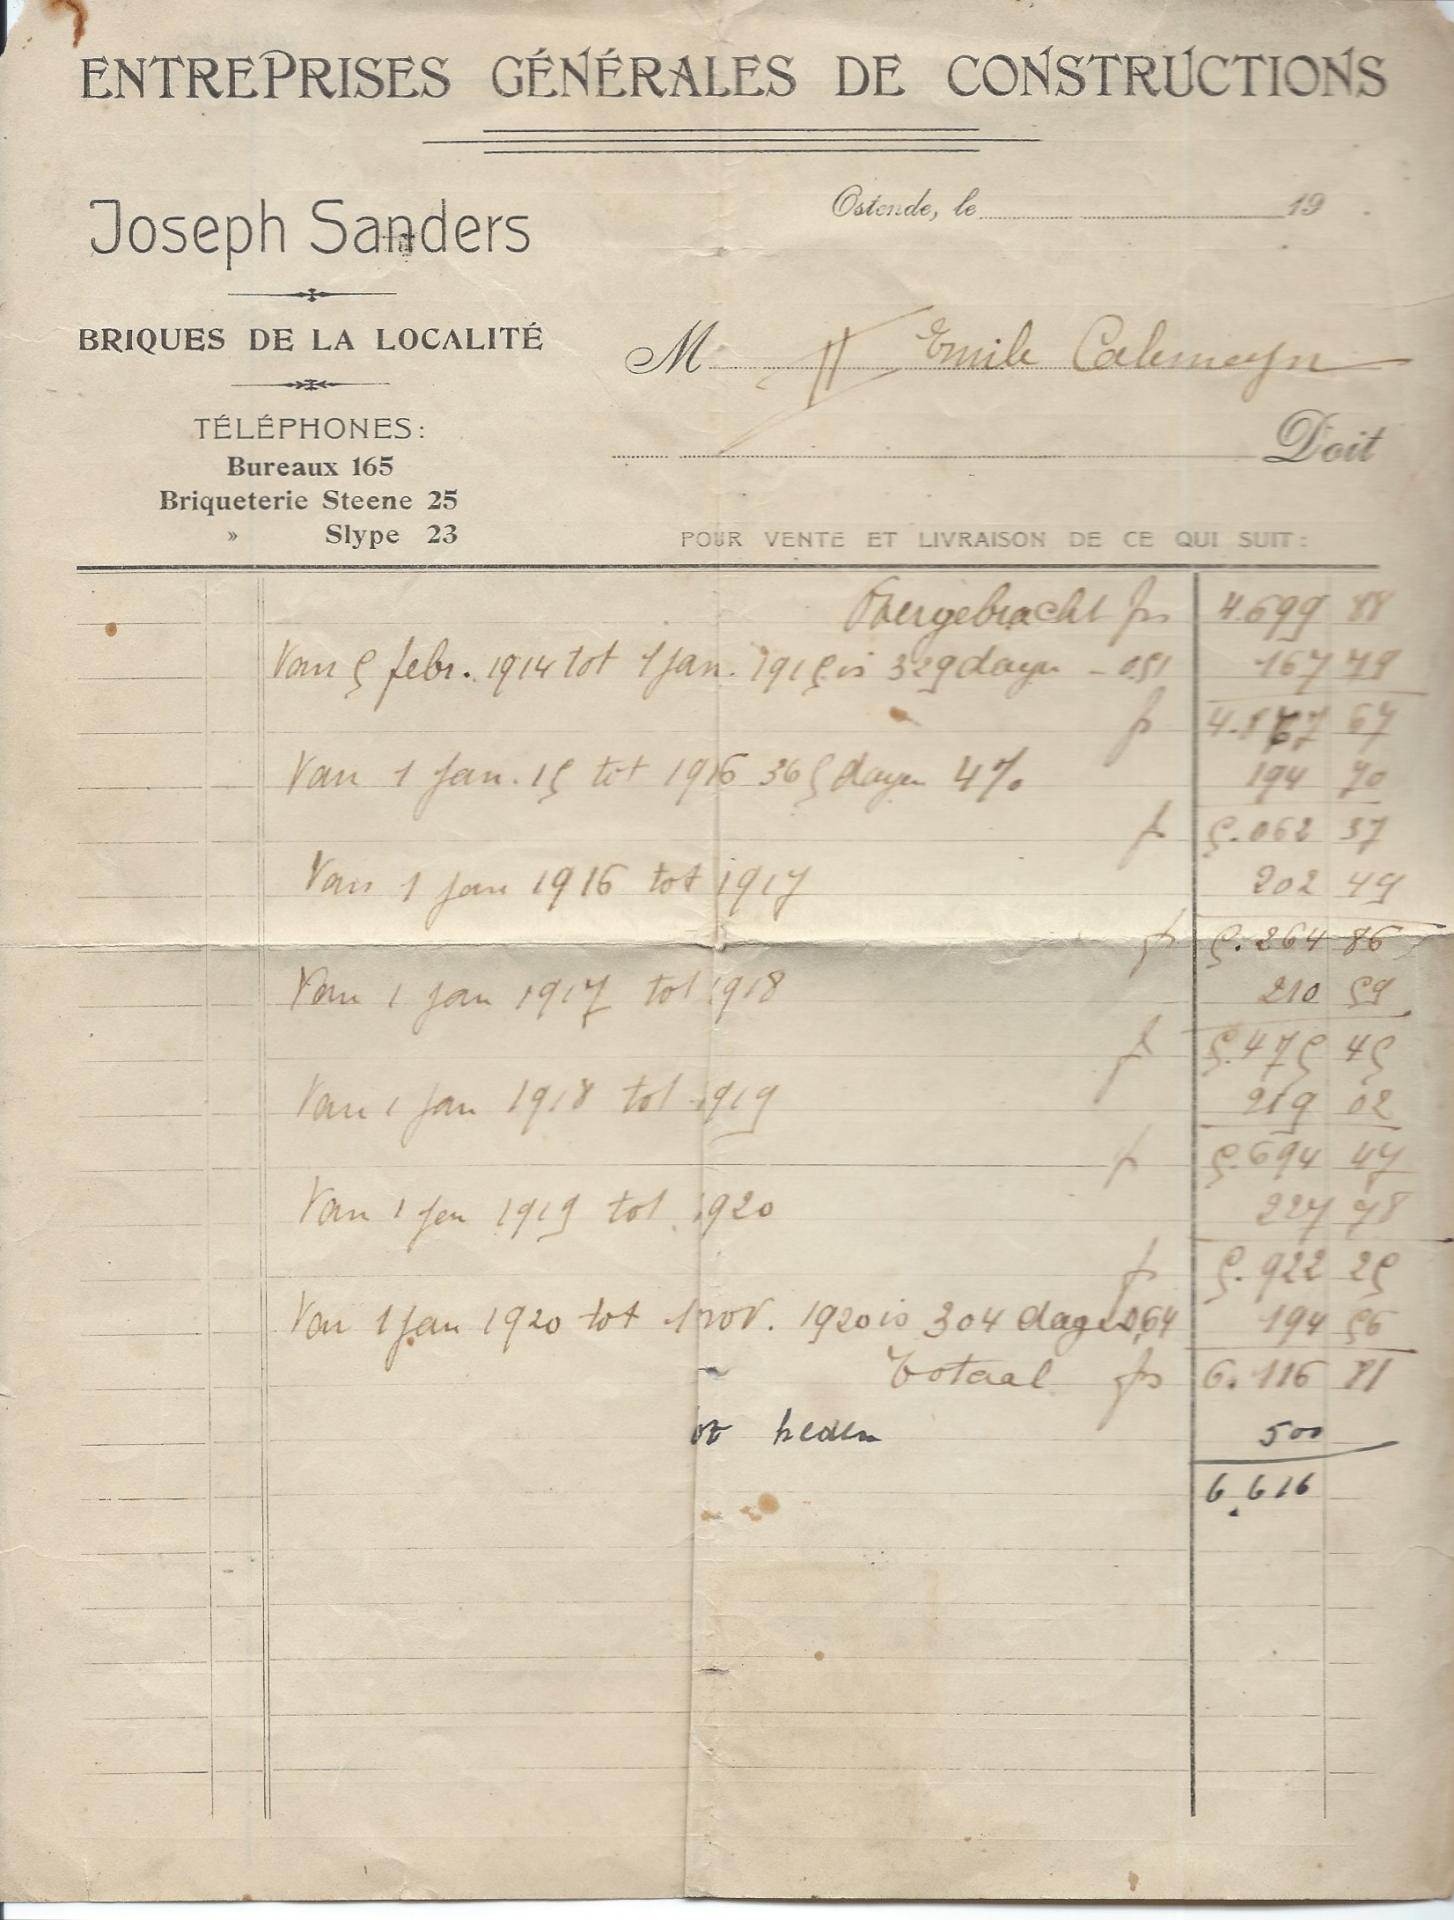 ENTREPRISES GÉNÉRALES DE CONSTRUCTIONS
Joseph Sanders
Ostende, le 19
BRIQUES DE LA LOCALITÉ
M Emile Calemeyn
TÉLÉPHONES:
Bureaux 165
Briqueterie Steene 25
» Slype 23
Doit
POUR VENTE ET LIVRAISON DE CE QUI SUIT:
Overgebracht frs 4.699 88
Van 5 febr. 1914 tot 1 jan. 1915 is 329 dagen - 0.51 167 79
fr 4.867 67
Van 1 jan. 15 tot 1916 365 dagen 4% 194 70
fr 5.062 37
Van 1 jan 1916 tot 1917 202 49
fr 5.264 86
Van 1 jan 1917 tot 1918 210 59
fr 5.475 45
Van 1 jan 1918 tot 1919 219 02
fr 5.694 47
Van 1 jan 1919 tot 1920 227 78
fr 5.922 25
Van 1 jan 1920 tot 1 nov. 1920 is 304 dagen 0,64 194 56
Totaal frs 6.116 81
tot heden 500
6.616